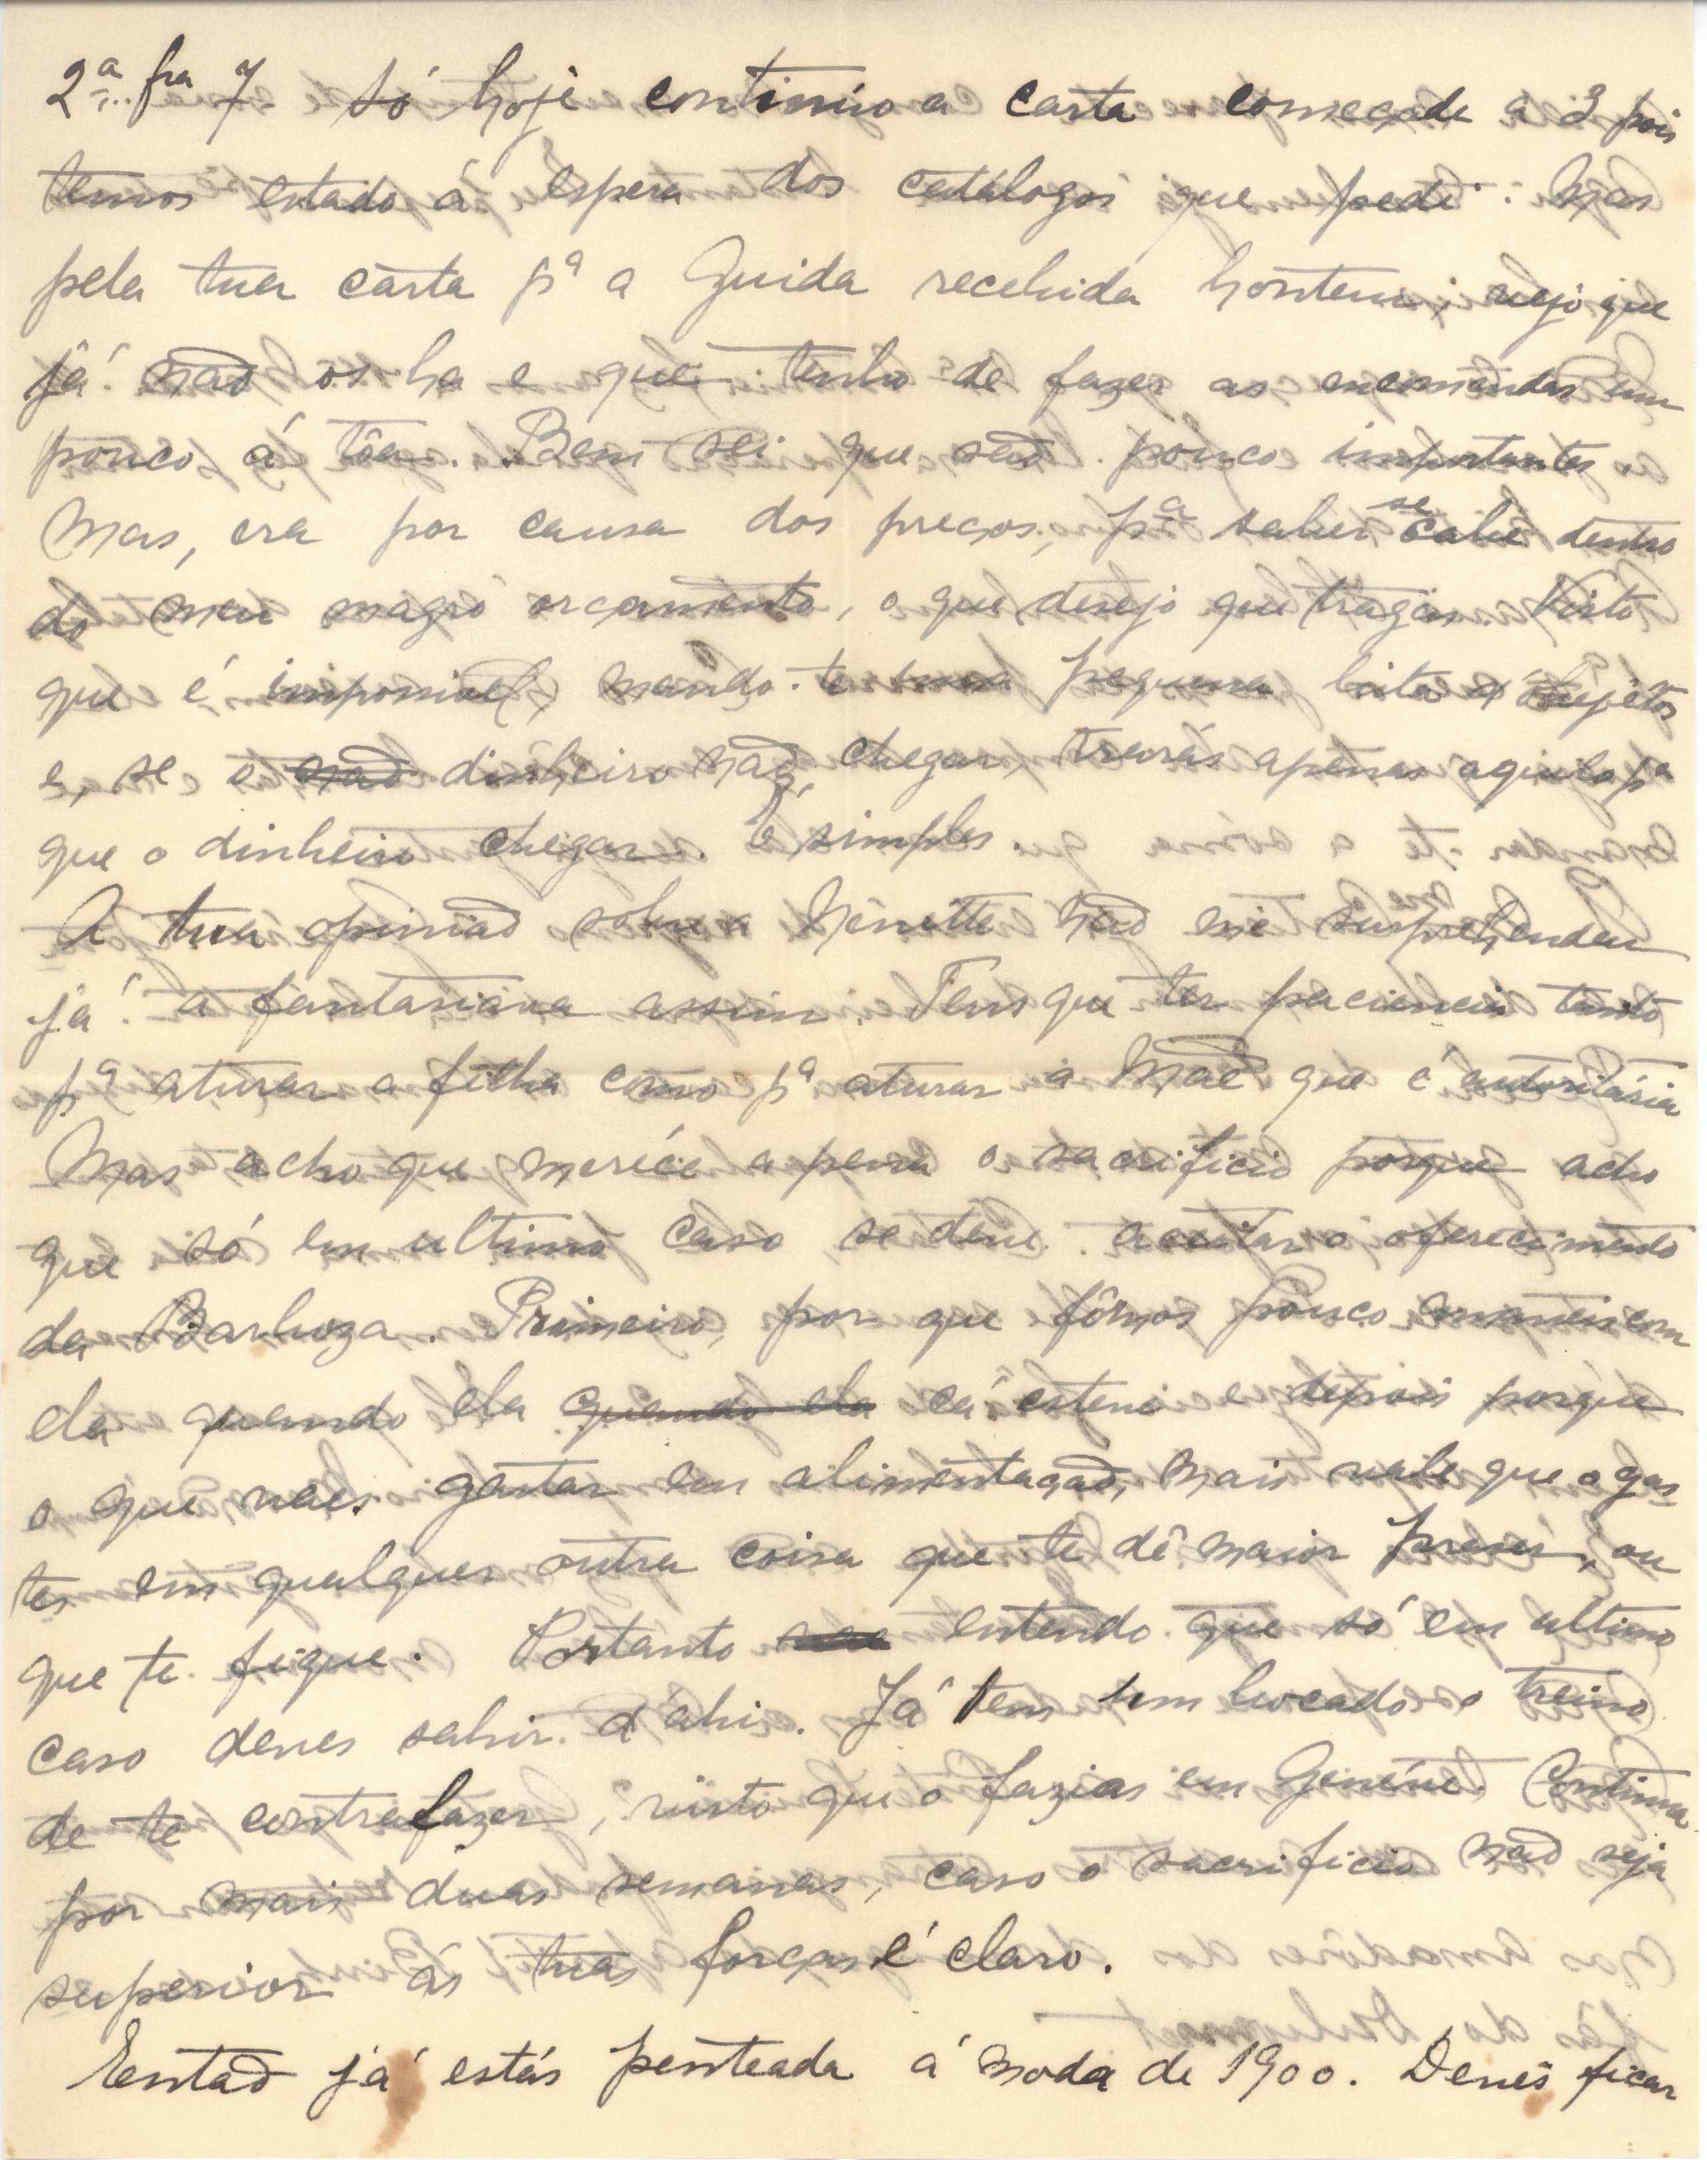 2ª fra 7- Só hoje continúo a carta começada a 3 pois
temos estado á espera dos catálogos que pedi. Mas
pela tua carta pª a Guida recebida hontem, vejo que
já não os ha e que tenho de fazer as encomendas um
pouco á tôa. Bem sei que são pouco importantes.
Mas, era por causa dos preços, pª saber se cabe dentro
do meu magro orçamento, o que desejo que tragas. Visto
que é impossivel, mando-te uma pequena lista d'objétos
e, se o não dinheiro não chegar, trarás apenas aquilo pª
que o dinheiro chegar. É simples.
A tua opinião sobre a Ninette não me surprehendeu
já a fantasiava assim. Tens que ter paciencia tanto
pª aturar a filha como pª aturar a Mãe que é autoritária
Mas acho que meréce a pena o sacrificio porque acho
que só em ultimo caso se deve aceitar o oferecimento
da Barboza. Primeiro, por que fômos pouco amaveis com
ela quando ela quando ela cá esteve e depois porque
o que vaes gastar em alimentação, mais vale que o gas
tes em qualquer outra coisa que te dê maior prazer, ou
que te fique. Portanto entendo que só em ultimo
caso deves sahir d'ahi. Já tens um bocado o treino
de te contrafazer, visto que o fazias em Genéve. Continua
por mais duas semanas, caso o sacrificio não seja
superior ás tuas forças é claro.
Entao já estás penteada á moda de 1900. Deves ficar